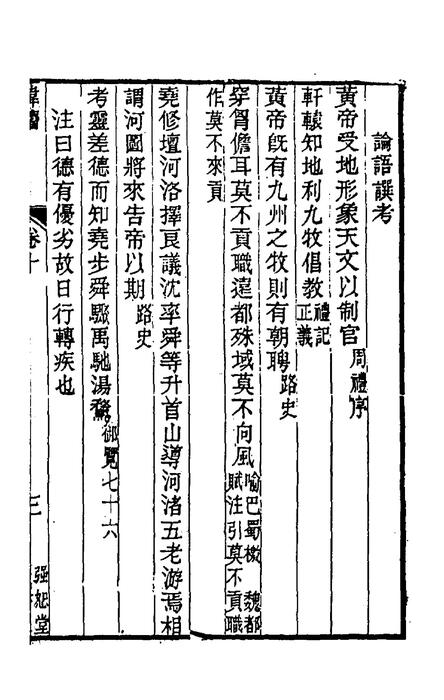 論語譔考
黃帝受地形象天文以制官周禮序
軒轅知地利九牧倡教禮記正義
黃帝旣有九州之牧則有朝聘路史
穿胷儋耳莫不貢職遠都殊域莫不向風喻巴蜀檄 魏都賦注引莫不貢職
作莫不來貢
堯修壇河洛擇良議沈率舜等升首山導河渚五老游焉相
謂河圖將來告帝以期路史
考靈差德而知堯步舜驟禹馳湯騖御覽七十六
注曰德有優劣故日行轉疾也
緯攟
卷十
三
強恕堂